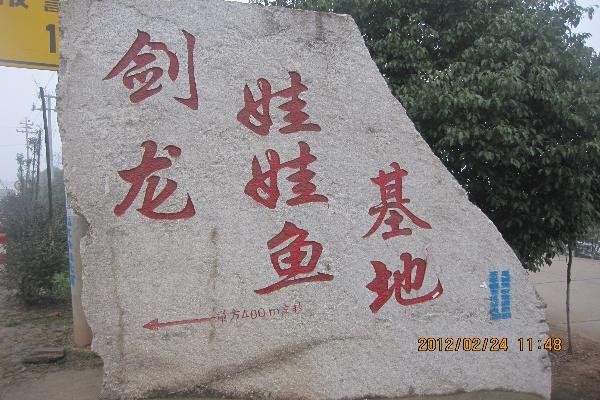 剑龙
娃娃鱼
基地
400m
1
2012/02/24 11:48